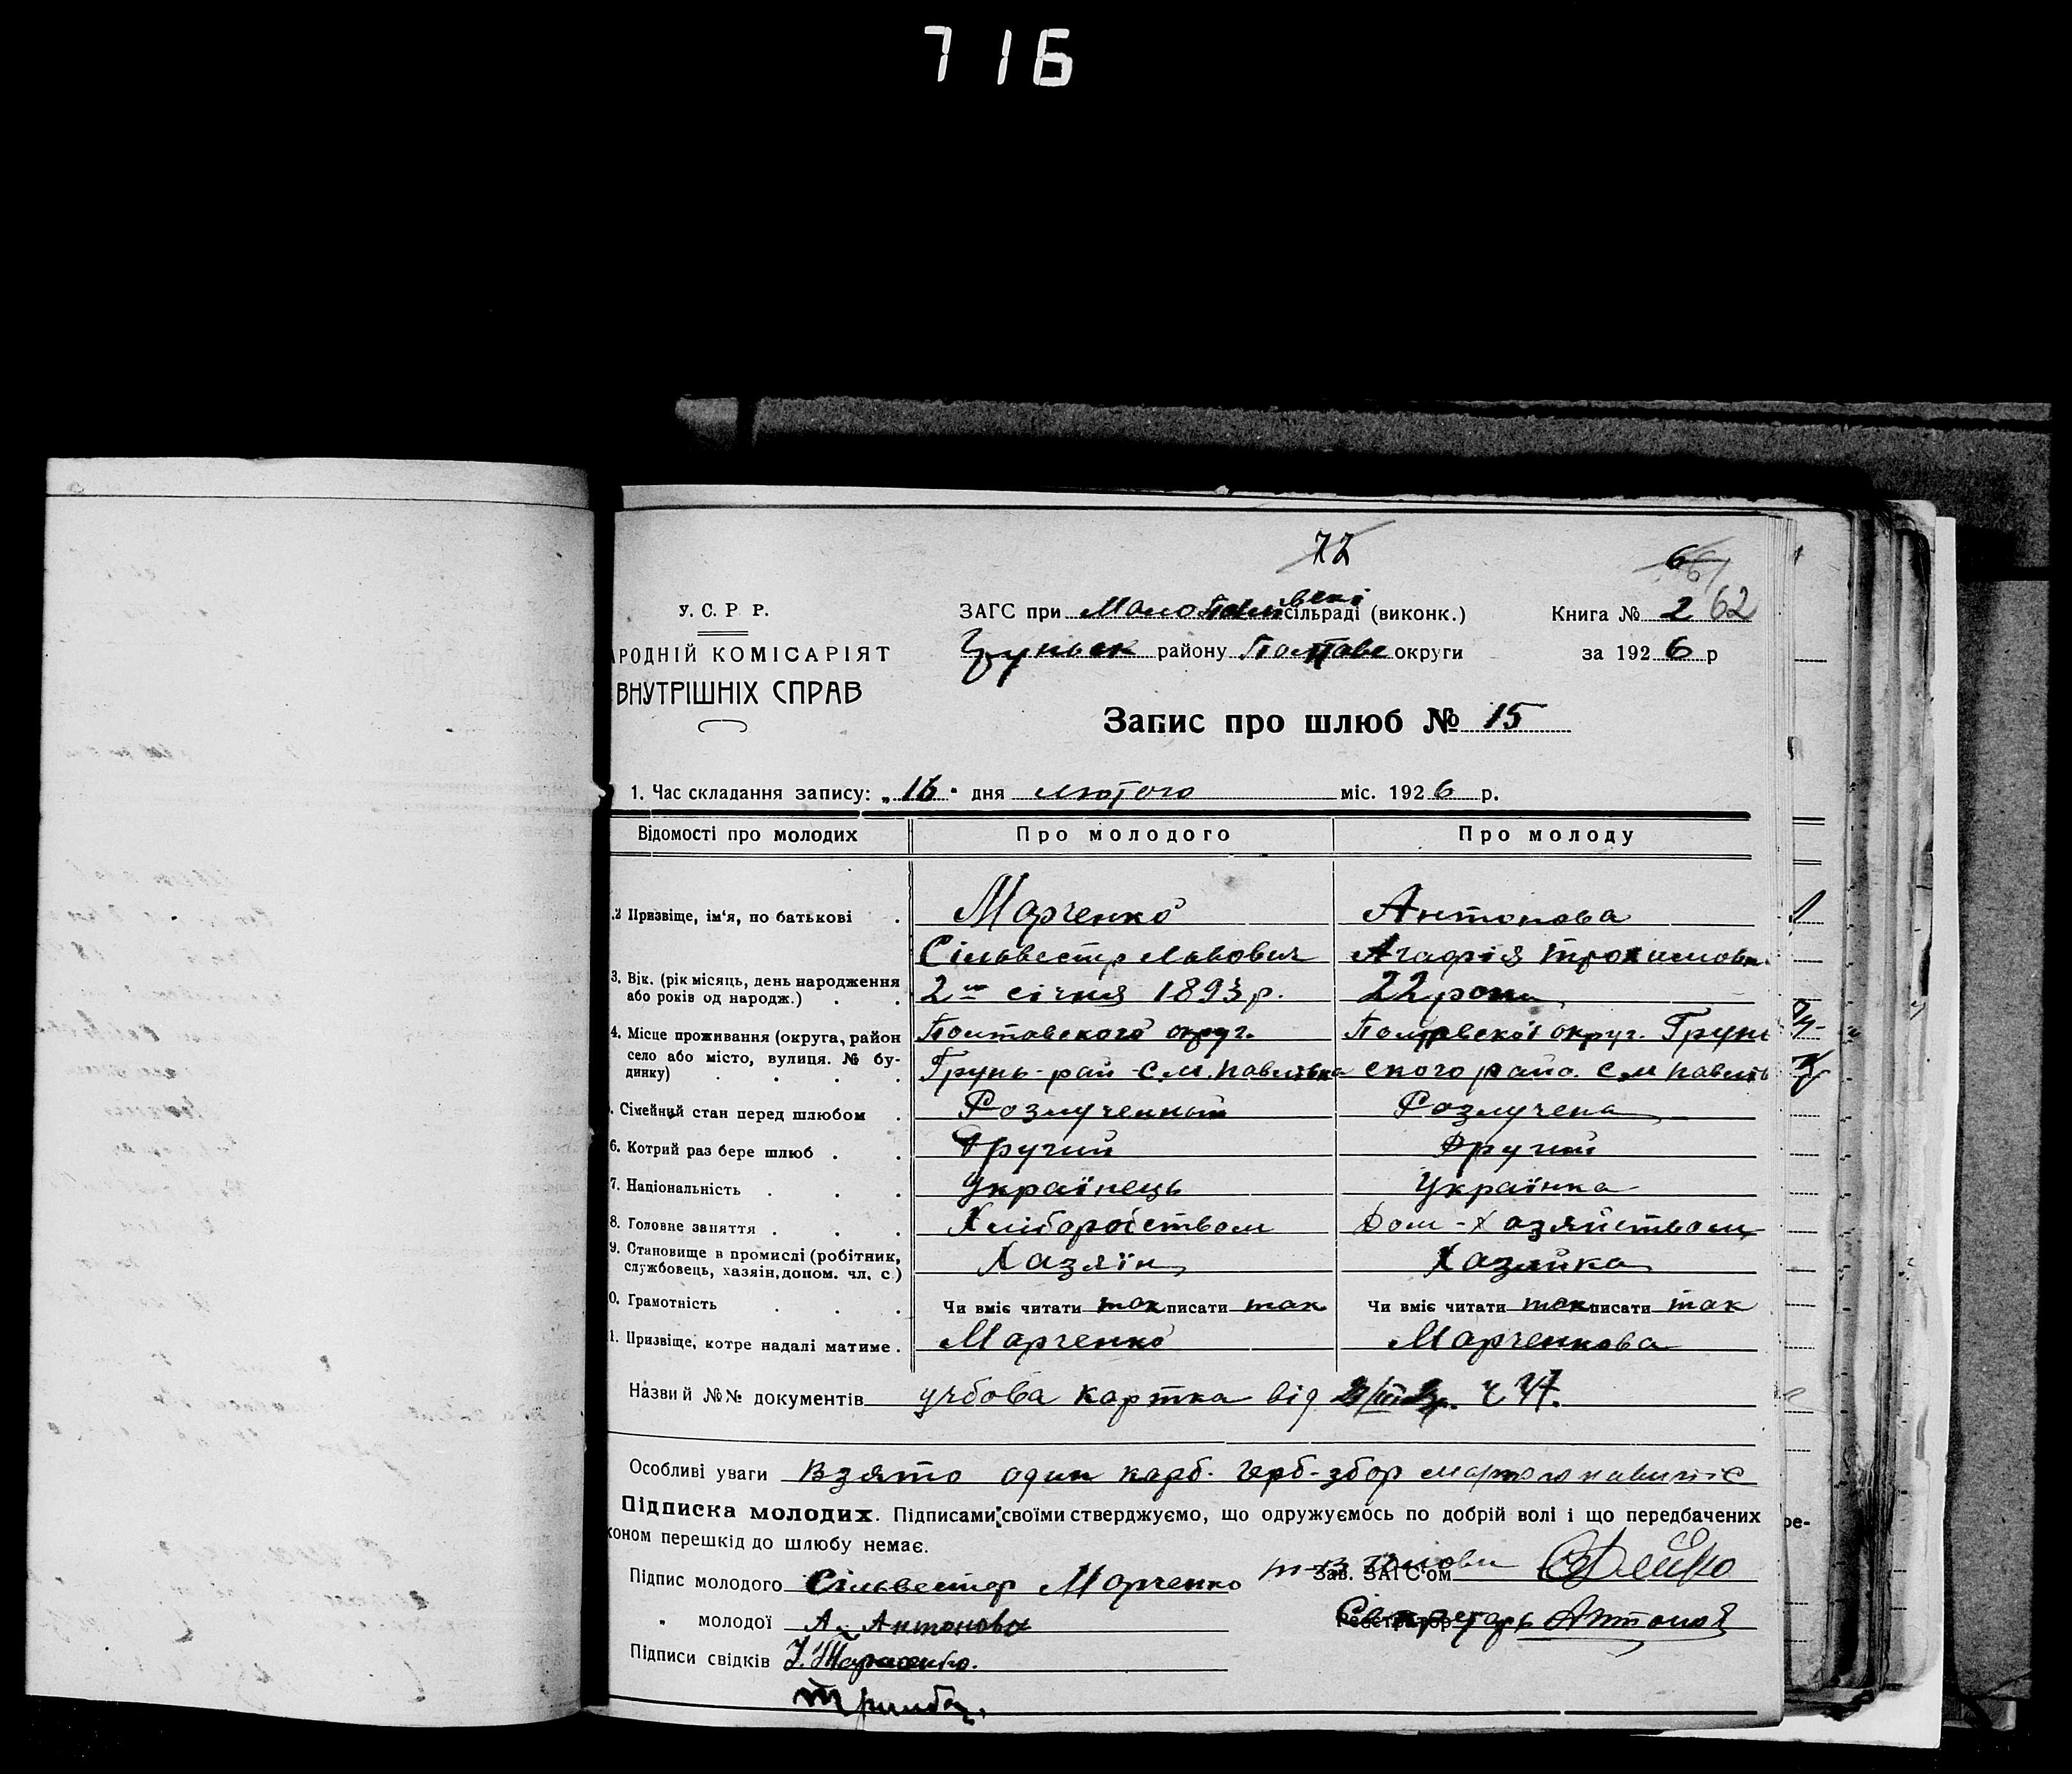 716
72
6
61
У. С. Р. Р.
ЗАГС при Мало Павлівські сільраді (виконк.)
Книга № 2 62
РОДНІЙ КОМІСАРІЯТ
Груньск району Полтавс округи
за 1926 р
ВНУТРІШНІХ СПРАВ
Запис про шлюб № 15
1. Час складання запису: „16" дня лютого міс. 1926 р.
Відомості про молодих
Про молодого
Про молоду
2 Призвіще, ім'я, по батькові
Марченко
Антонова
Сільвестр Львович
Агафія Трохимовн.
3. Вік. (рік місяць, день народження
або років од народж.)
2го січня 1893 р.
22 роки
4. Місце проживання (округа, район
село або місто, вулиця. № бу-
динку)
Полтавського округ.
Полтавської округ. Грунь
Грунь-рай-с.м.Павлівка
ского райо. с м Павлів
. Сімейний стан перед шлюбом
Розлученный
Розлучена
6. Котрий раз бере шлюб
Другий
Другий
7. Національність
Українець
Українка
8. Головне заняття
Хліборобством
Дом-хозяйством
9. Становище в промислі (робітник,
службовець, хазяїн, допом. чл. с)
Хазяїн
Хазяйка
0. Грамотність
Чи вміє читати так писати так
Чи вміє читати так писати так
1. Призвіще, котре надалі матиме.
Марченко
Марченкова
Назви й №№ документів учбова картка від
Особливі уваги Взято один карб. герб-збор маркою
Підписка молодих. Підписами своїми стверджуємо, що одружуємось по добрій волі і що передбачених
коном перешкід до шлюбу немає.
Підпис молодого Сільвестр Марченко
Зав. ЗАГС'ом
" молодої А. Антонова
Реєстратор Секретарь Антонов
Підписи свідків
ре-